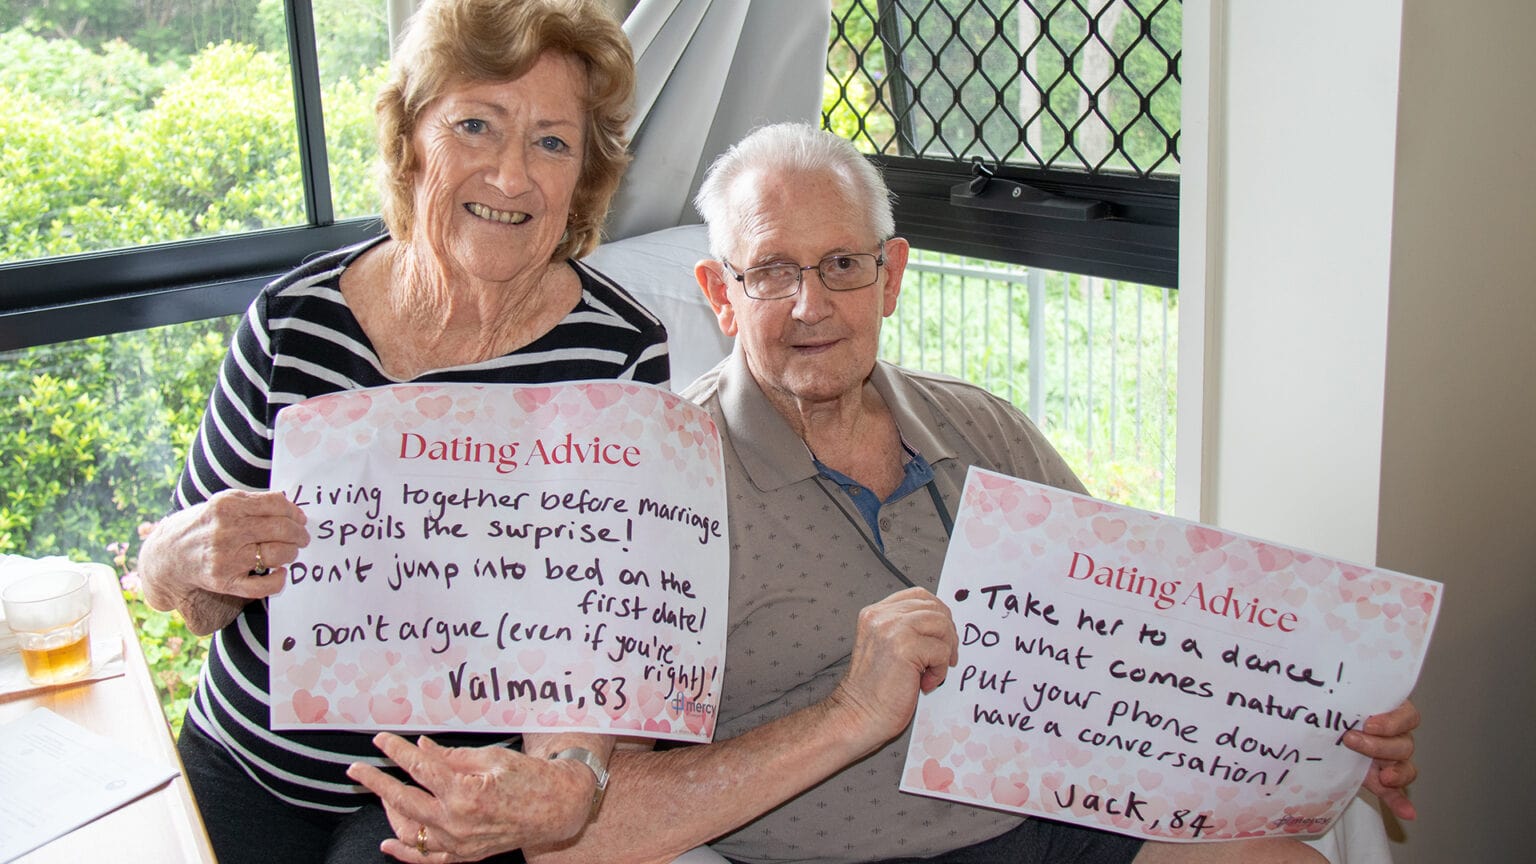 Dating Advice
Living together before marriage
spoils the surprise!
Don't jump into bed on the
first date!
• Don't argue (even if you're
right)!
Valmai, 83
mercy
Dating Advice
• Take her to a dance!
Do what comes naturally
put your phone down-
have a conversation!
Jack, 84
mercy